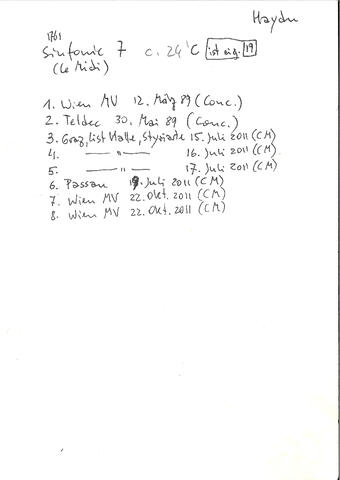 Haydn
1761
Sinfonie 7 c. 24' C ist eig. 19
(Le Midi)
1. Wien MV 12. März 89 (Conc.)
2. Teldec 30. Mai 89 (Conc.)
3. Graz, List Halle, Styriarte 15. Juli 2011 (CM)
4. —— " —— 16. Juli 2011 (CM)
5. —— " —— 17. Juli 2011 (CM)
6. Passau 19. Juli 2011 (CM)
7. Wien MV 22. Okt. 2011 (CM)
8. Wien MV 22. Okt. 2011 (CM)